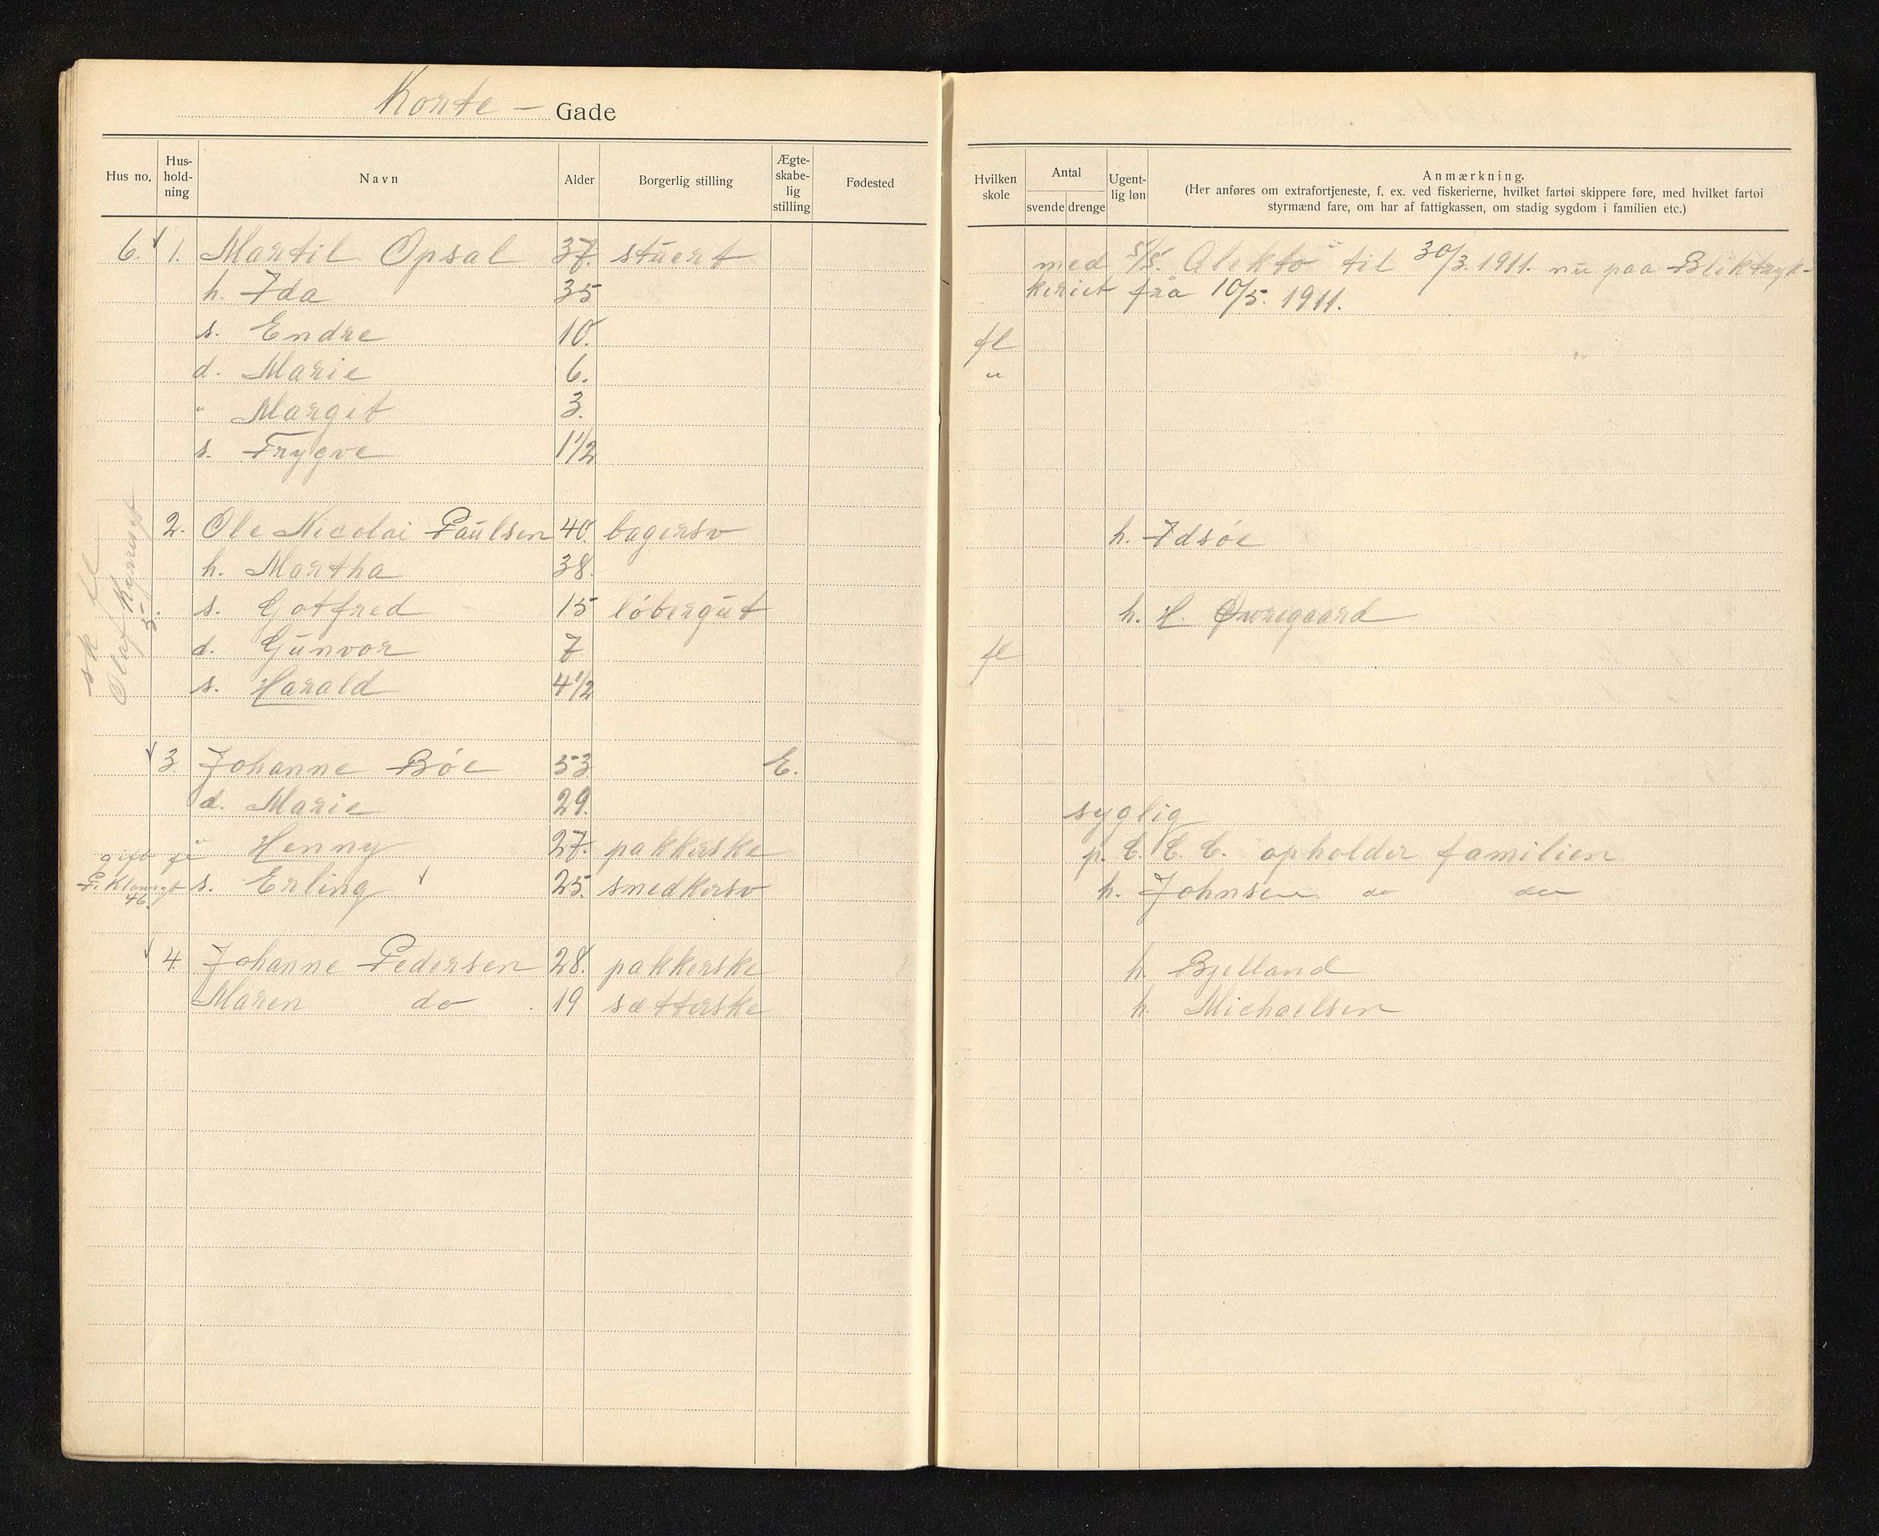 Korte - Gade
Hus no.
Hus-
hold-
ning
Navn
Alder
Borgerlig stilling
Ægte-
skabe-
lig
stilling
Fødested
6. 1. Martil Opsal 37. stuert
h. Ida 35
s. Endre 10.
d. Marie 6.
" Margit 3.
s. Trygve 1 1/2
2. Ole Nicolai Paulsen 40. bagersv
h. Martha 38.
s. Gotfred 15 løbergut
d. Gunvor 7
s. Harald 4 1/2
sk fl
Olaf Kyrresgt
5.
3. Johanne Bøe 53 E.
d. Marie 29.
" Henny 27. pakkerske
gift
s. Erling 25. snedkersv
46.
4. Johanne Pedersen 28. pakkerske
Maren do 19 sætterske
Hvilken
skole
Antal
svende drenge
Ugent-
lig løn
Anmærkning.
(Her anføres om extrafortjeneste, f. ex. ved fiskerierne, hvilket fartøi skippere føre, med hvilket fartøi
styrmænd fare, om har af fattigkassen, om stadig sygdom i familien etc.)
med S/S. "Alekto" til 30/3. 1911. nu paa Bliktryk-
keriet fra 10/5. 1911.
fl
"
h. Idsøe
h. H. Øvregaard
fl
syglig
p. C. C. C. opholder familien
h. Johnsen do do
h. Bjelland
h. Michaelsen